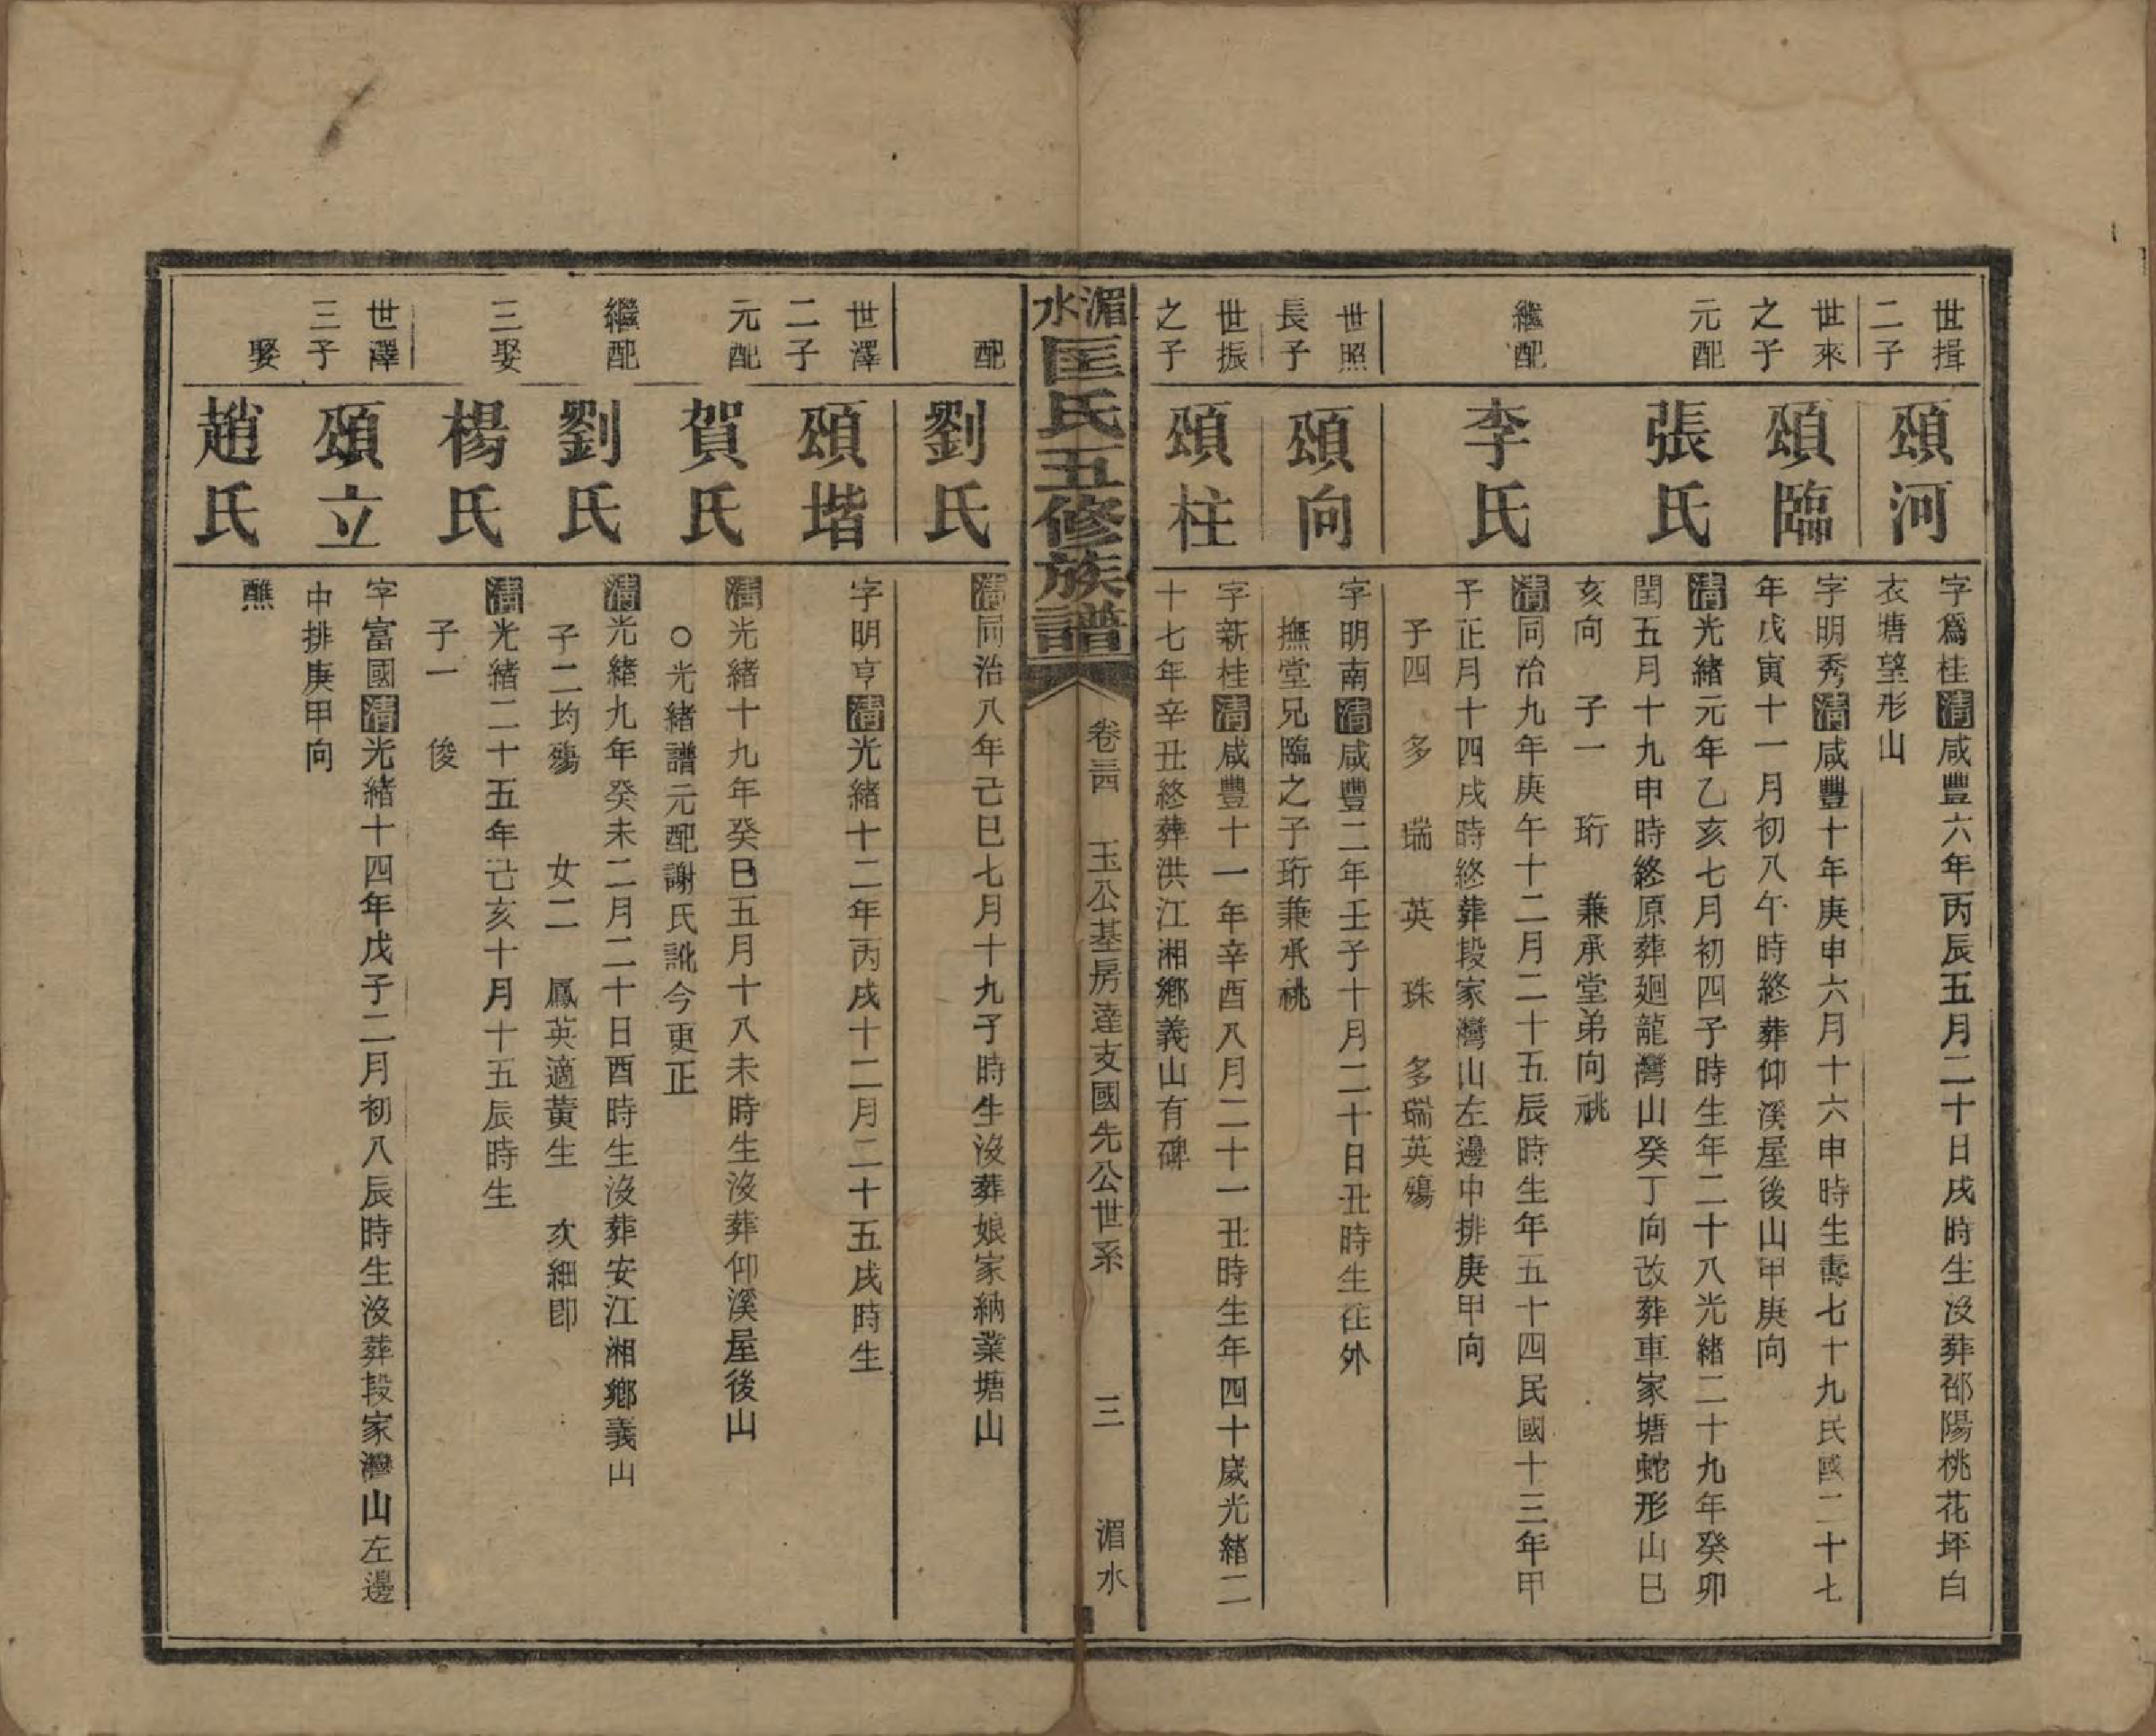 世揖
二子
頌河
字爲桂清咸豐六年丙辰五月二十日戌時生沒葬邵陽桃花坪白
衣塘望形山
世來
之子
頌臨
字明秀清咸豐十年庚申六月十六申時生壽七十九民國二十七
年戊寅十一月初八午時終葬仰溪屋後山甲庚向
元配
張氏
清光緒元年乙亥七月初四子時生年二十八光緒二十九年癸卯
閏五月十九申時終原葬廻龍灣山癸丁向改葬車家塘蛇形山巳
亥向　子一　珩　兼承堂弟向祧
繼配
李氏
清同治九年庚午十二月二十五辰時生年五十四民國十三年甲
子正月十四戌時終葬段家灣山左邊中排庚甲向
子四　多　瑞　英　珠　多瑞英殤
世照
長子
頌向
字明南清咸豐二年壬子十月二十日丑時生往外
撫堂兄臨之子珩兼承祧
世振
之子
頌柱
字新桂清咸豐十一年辛酉八月二十一丑時生年四十歲光緒二
十七年辛丑終葬洪江湘鄉義山有碑
湄水匡氏五修族譜
卷三四　玉公基房達支國先公世系　三　湄水
配
劉氏
清同治八年己巳七月十九子時生沒葬娘家納業塘山
世澤
二子
頌堦
字明亨清光緒十二年丙戌十二月二十五戌時生
元配
賀氏
清光緒十九年癸巳五月十八未時生沒葬仰溪屋後山
○光緒譜元配謝氏訛今更正
繼配
劉氏
清光緒九年癸未二月二十日酉時生沒葬安江湘鄉義山
子二均殤　女二　鳳英適黃生　次細卽
三娶
楊氏
清光緒二十五年己亥十月十五辰時生
子一　俊
世澤
三子
頌立
字富國清光緒十四年戊子二月初八辰時生沒葬段家灣山左邊
中排庚甲向
娶
趙氏
醮